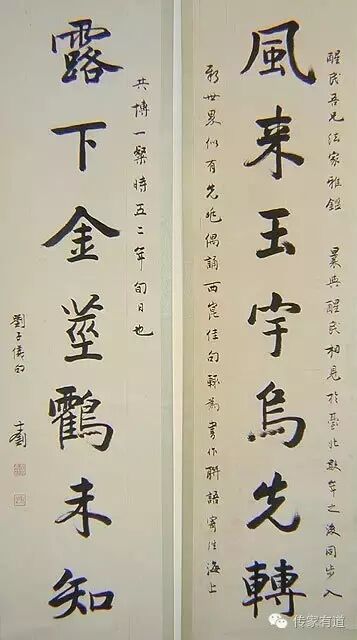 醒民吾兄法家雅鑑 曩與醒民相見於臺北數年之後同步入
風来玉宇烏先轉
新世界似有先兆偶誦西崑佳句輒為書作聯語寄往海上
共博一粲時五二年旬日也
露下金莖鶴未知
劉子
传家有道